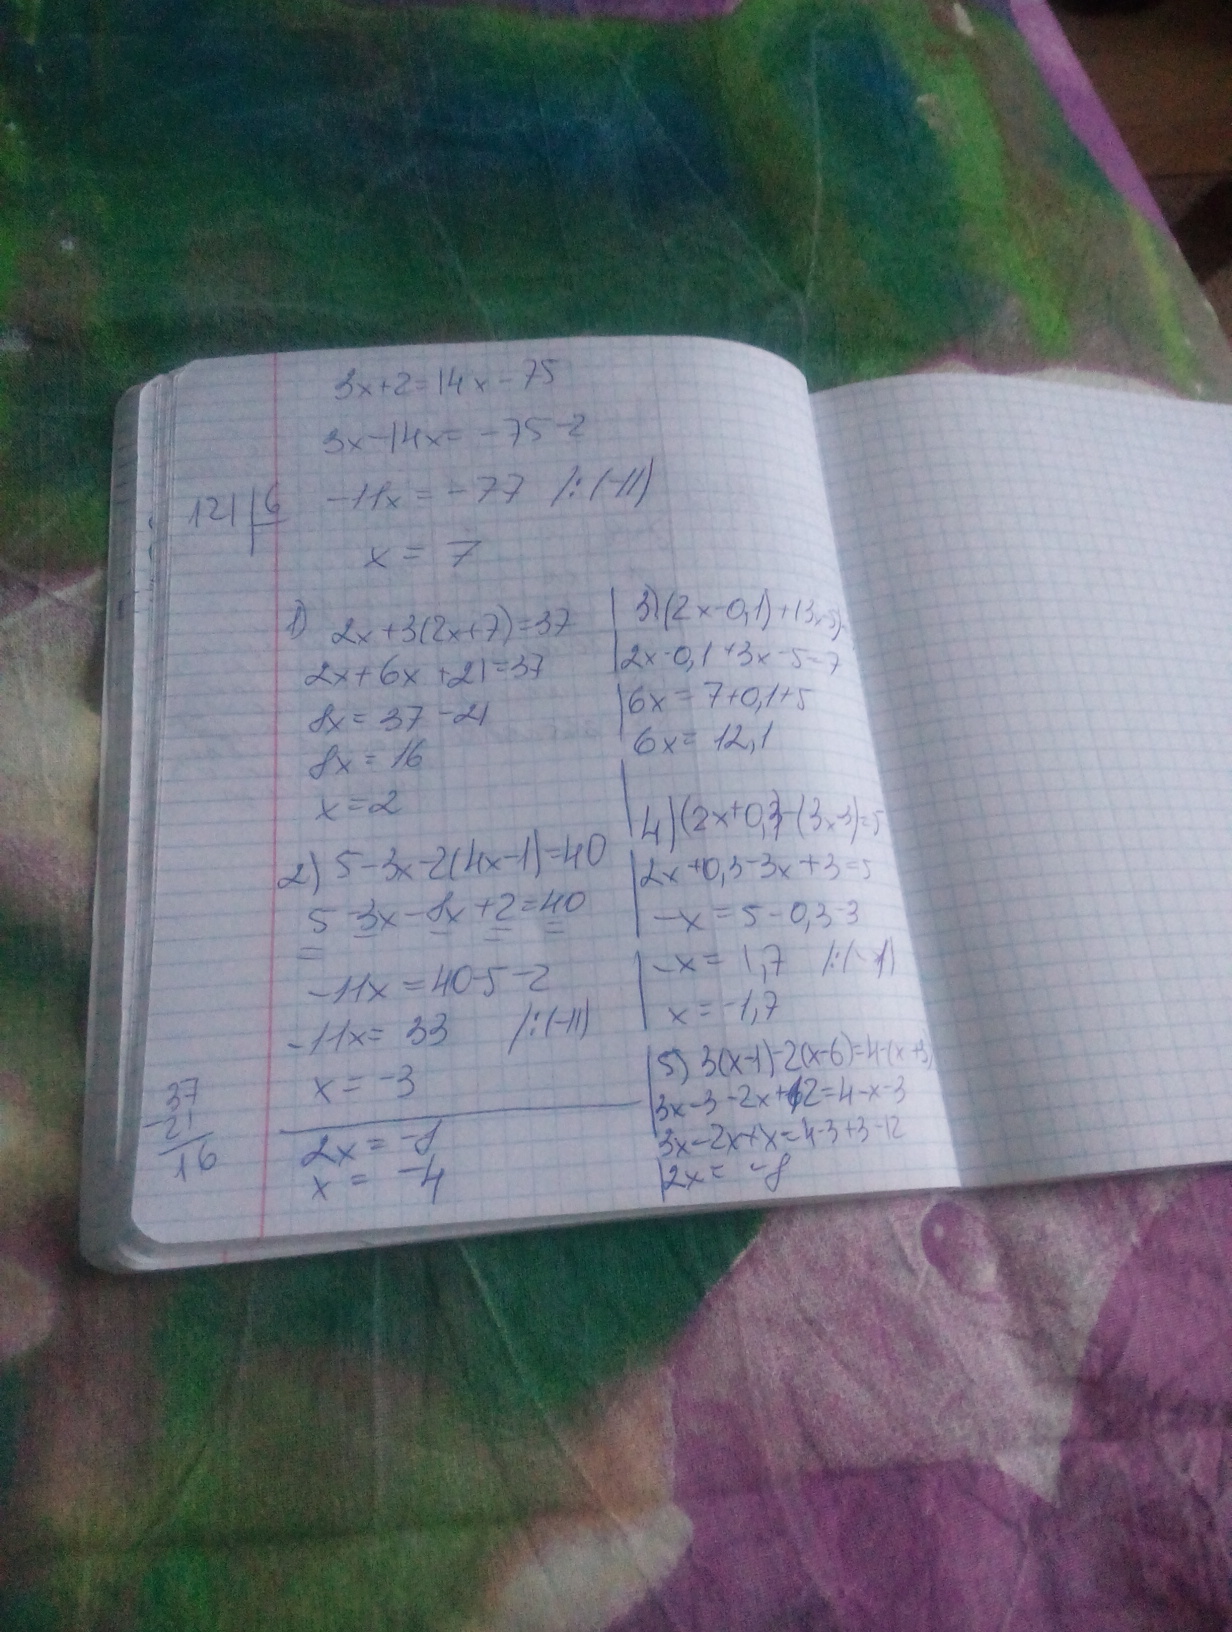 3x+2=14x-75
3x-14x=-75-2
-11x=-77 /:(-11)
121|6
x=7
1) 2x+3(2x+7)=37
2x+6x+21=37
8x=37-21
8x=16
x=2
2) 5-3x-2(4x-1)=40
5-3x-8x+2=40
-11x=40-5-2
-11x=33 /:(-11)
x=-3
37
-21
16
2x=-8
x=-4
3) (2x-0,1)+(3x-5)=
2x-0,1+3x-5=7
6x=7+0,1+5
6x=12,1
4) (2x+0,3)-(3x-3)=5
2x+0,3-3x+3=5
-x=5-0,3-3
-x=1,7 /:(-1)
x=-1,7
5) 3(x-1)-2(x-6)=4-(x+3)
3x-3-2x+12=4-x-3
3x-2x+x=4-3+3-12
2x=-8